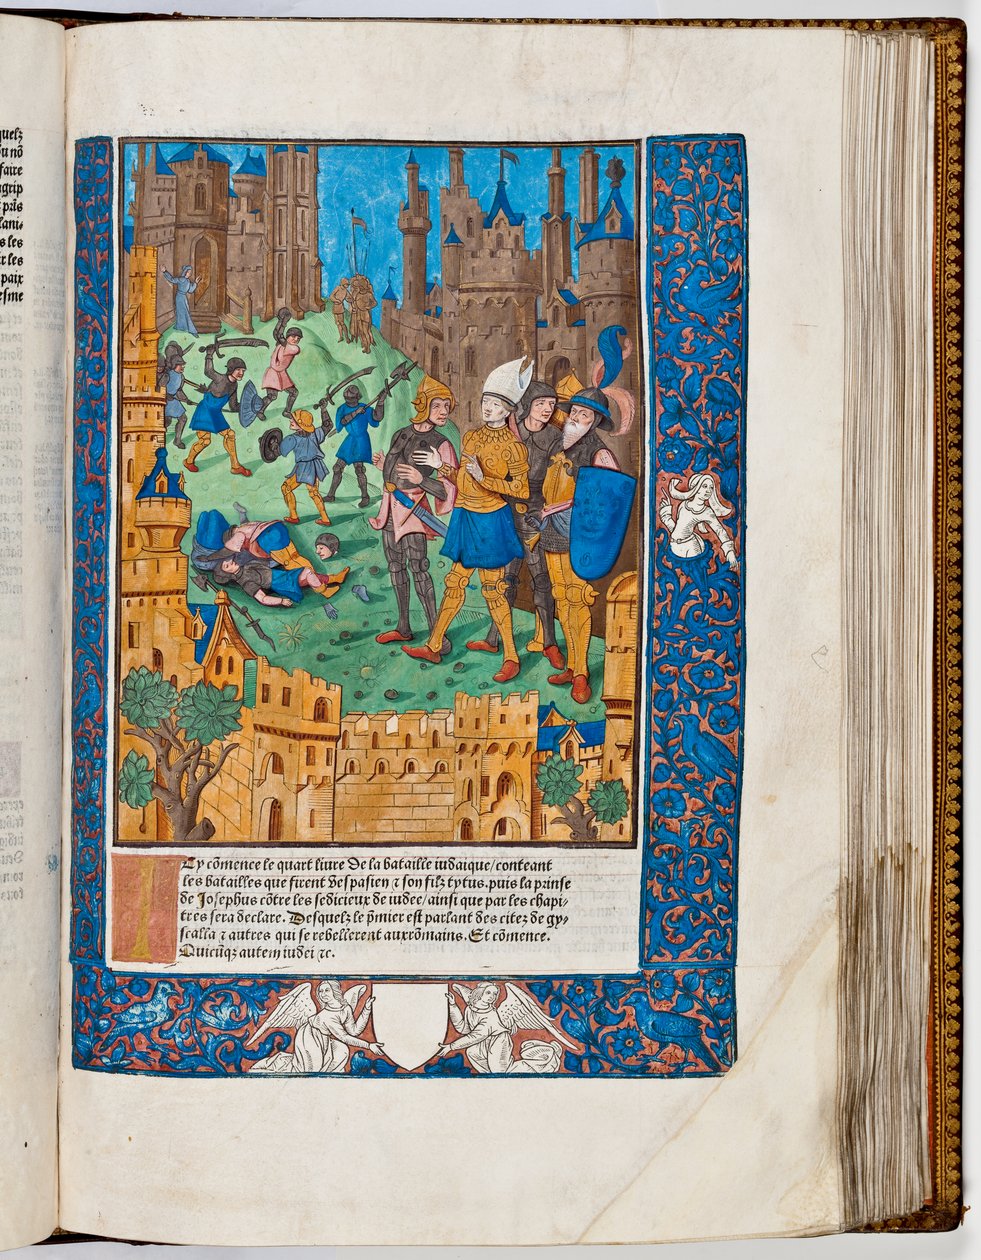 quelz
u nõ
faire
grip
lani-
s les
r les
paix
esme
ICy cõmence le quart liure De la bataille iudaique/conteant
les batailles que firent vespasien ⁊ son filz tytus. puis la prinse
de Josephus cõtre les sedicieux de iudee/ainsi que par les chapi-
tres sera declare. Desquelz le p̃mier est parlant des citez de gy-
scalla ⁊ autres qui se rebellerent aux rõmains. Et cõmence.
Quicũqz autem iudei ⁊c.